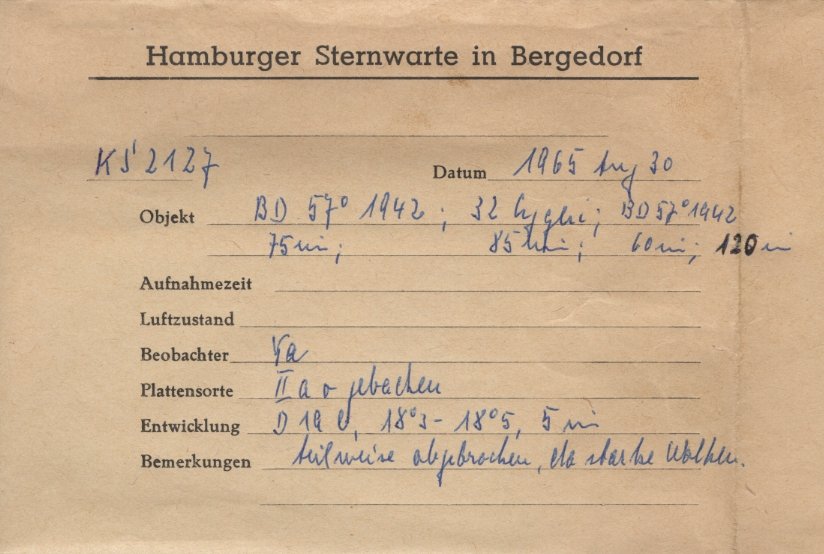 Hamburger Sternwarte in Bergedorf
KS 2127 Datum 1965 Aug 30
Objekt BD 57° 1942 ; 32 Cygni ; BD 57° 1942
75 min ; 85 min ; 60 min ; 120 min
Aufnahmezeit
Luftzustand
Beobachter
Plattensorte II a o gebacken
Entwicklung D 19 b, 18°3 - 18°5, 5 min
Bemerkungen teilweise abgebrochen, da starke Wolken.